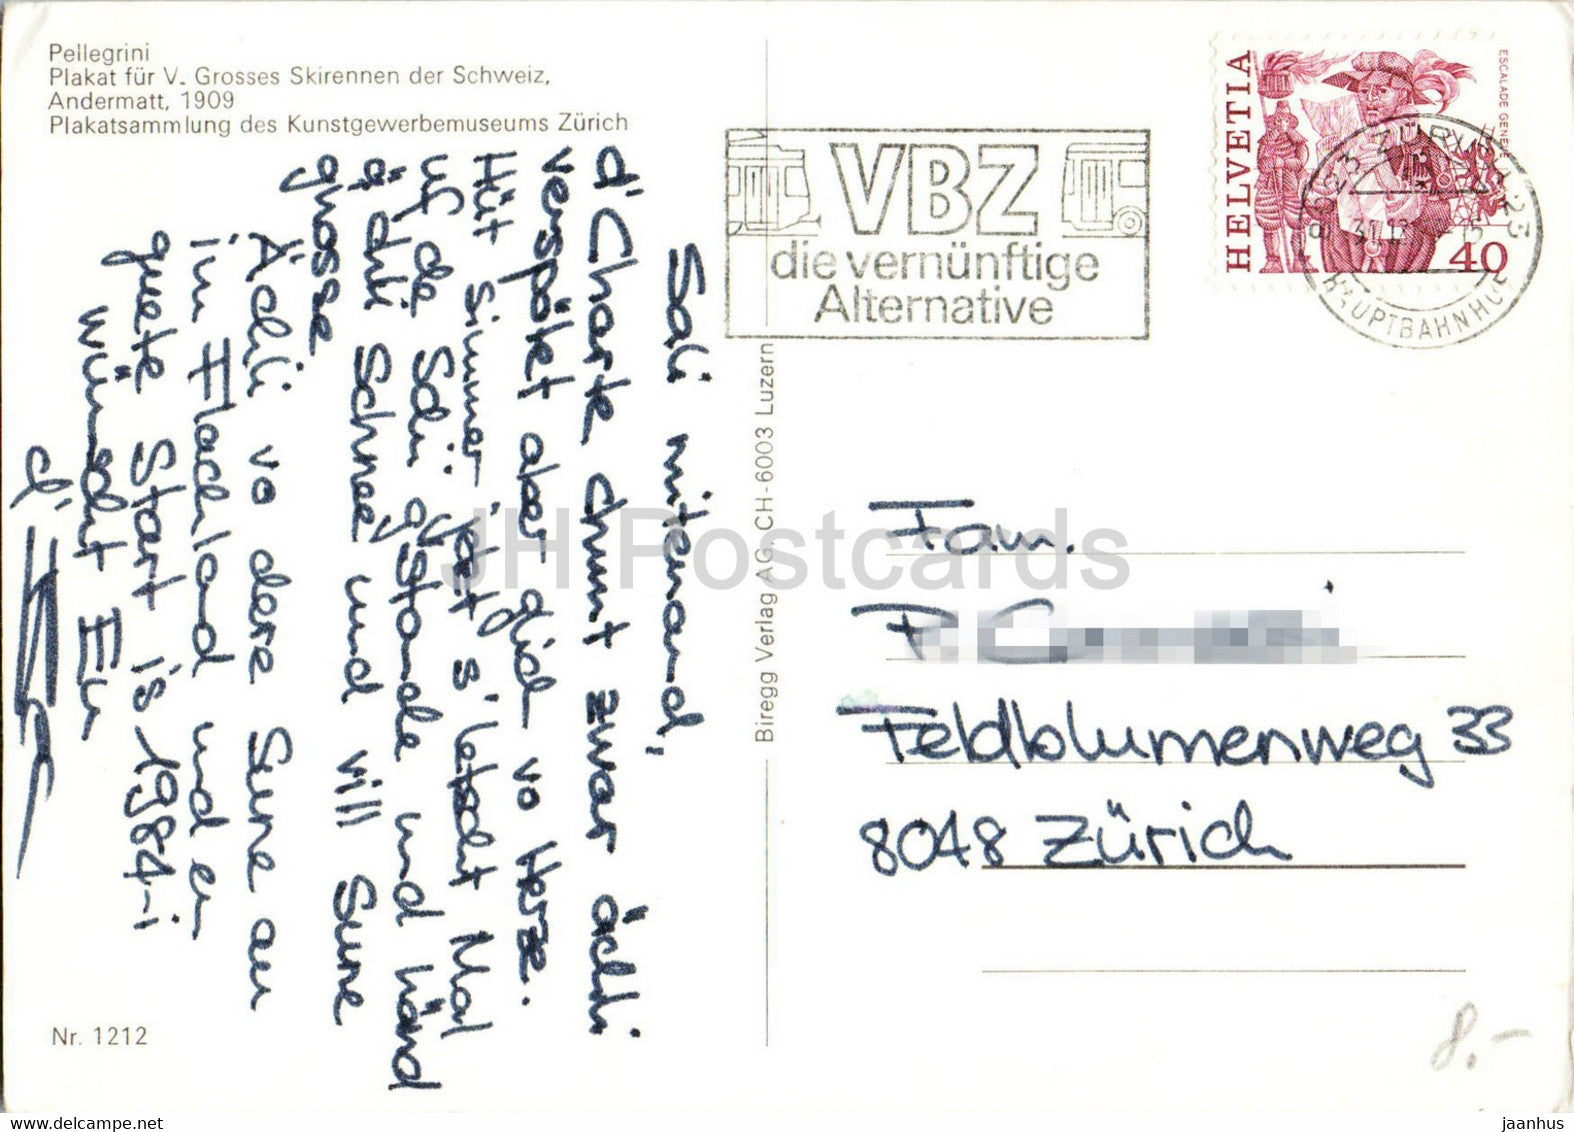 Pellegrini
Plakat für V. Grosses Skirennen der Schweiz,
Andermatt, 1909
Plakatsammlung des Kunstgewerbemuseums Zürich
Sali mitenand,
d'Charte chunt zwar ächli
verspötet aber glich vo Herze.
Hüt simmer jetzt s'letscht Mal
uf de Schi gstande und händ
ä dili Schnee und vill Sune
gnosse
Ächli vo dere Sune au
im Flachland und en
guete Start is 1984-i
wünscht Eu
d'
Nr. 1212
Biregg Verlag AG. CH-6003 Luzern
VBZ
die vernünftige
Alternative
HELVETIA
ESCALADE GENEVE
40
8023 ZÜRICH 23
HAUPTBAHNHOF
Fam.
Feldblumenweg 33
8048 Zürich
8.-
JH Postcards
https://www.delcampe.net
jaanhus